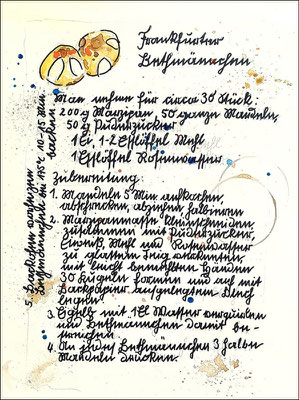 Frankfurter
Bethmännchen
Man nehme für circa 30 Stück:
200 g Marzipan, 50 ganze Mandeln,
50 g Puderzucker
1 Ei, 1-2 Esslöffel Mehl
1 Esslöffel Rosenwasser
Zubereitung:
1. Mandeln 5 Min aufkochen,
abschrecken, abziehen, halbieren
2. Marzipanmasse kleinschneiden,
zusammen mit Puderzucker,
Eiweiß, Mehl und Rosenwasser
zu glattem Teig verkneten,
mit leicht bemehlten Händen
30 Kugeln formen und auf mit
Backpapier ausgelegtem Blech
legen.
3. Eigelb mit 1 El Wasser verquirlen
und Bethmännchen damit be-
streichen.
4. An jedes Bethmännchen 3 halbe
Mandeln drücken.
5. Backofen vorheizen
175°C 10-15 Min
backen